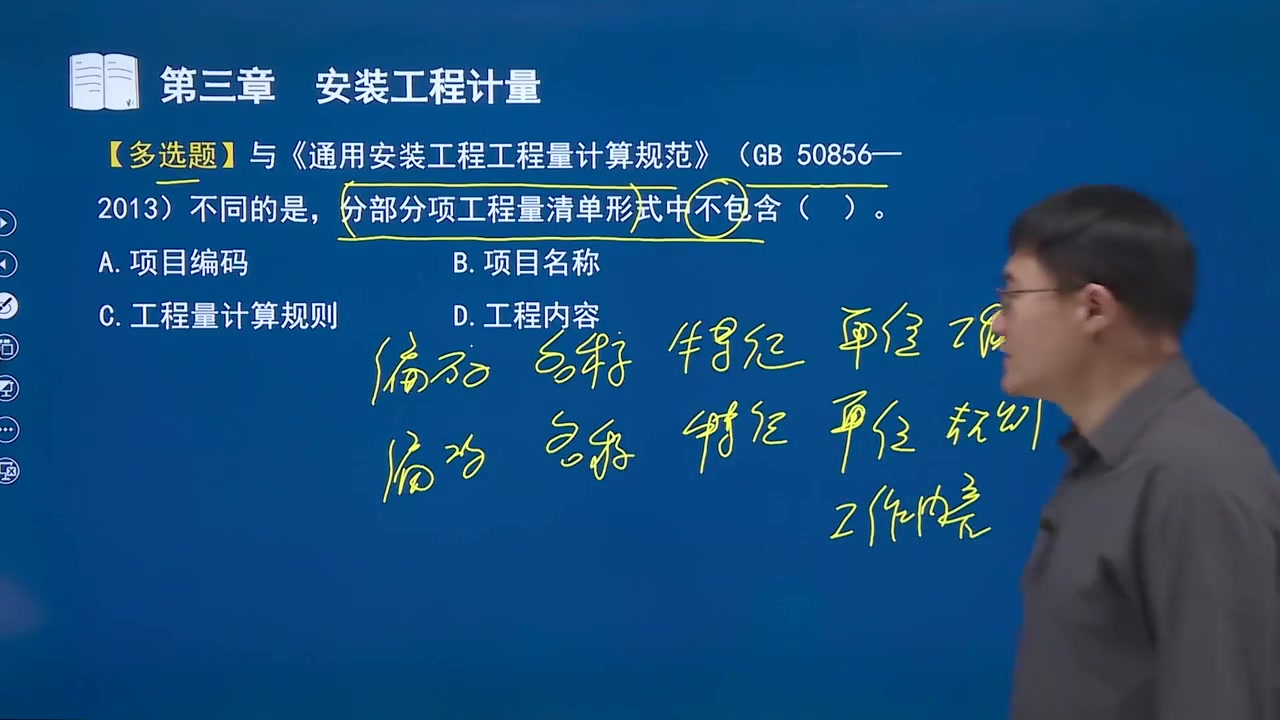 第三章 安装工程计量
【多选题】与《通用安装工程工程量计算规范》（GB 50856—
2013）不同的是，分部分项工程量清单形式中不包含（ ）。
A.项目编码 B.项目名称
C.工程量计算规则 D.工程内容
编码 名称 特征 单位 工
编码 名称 特征 单位 规则
工作内容